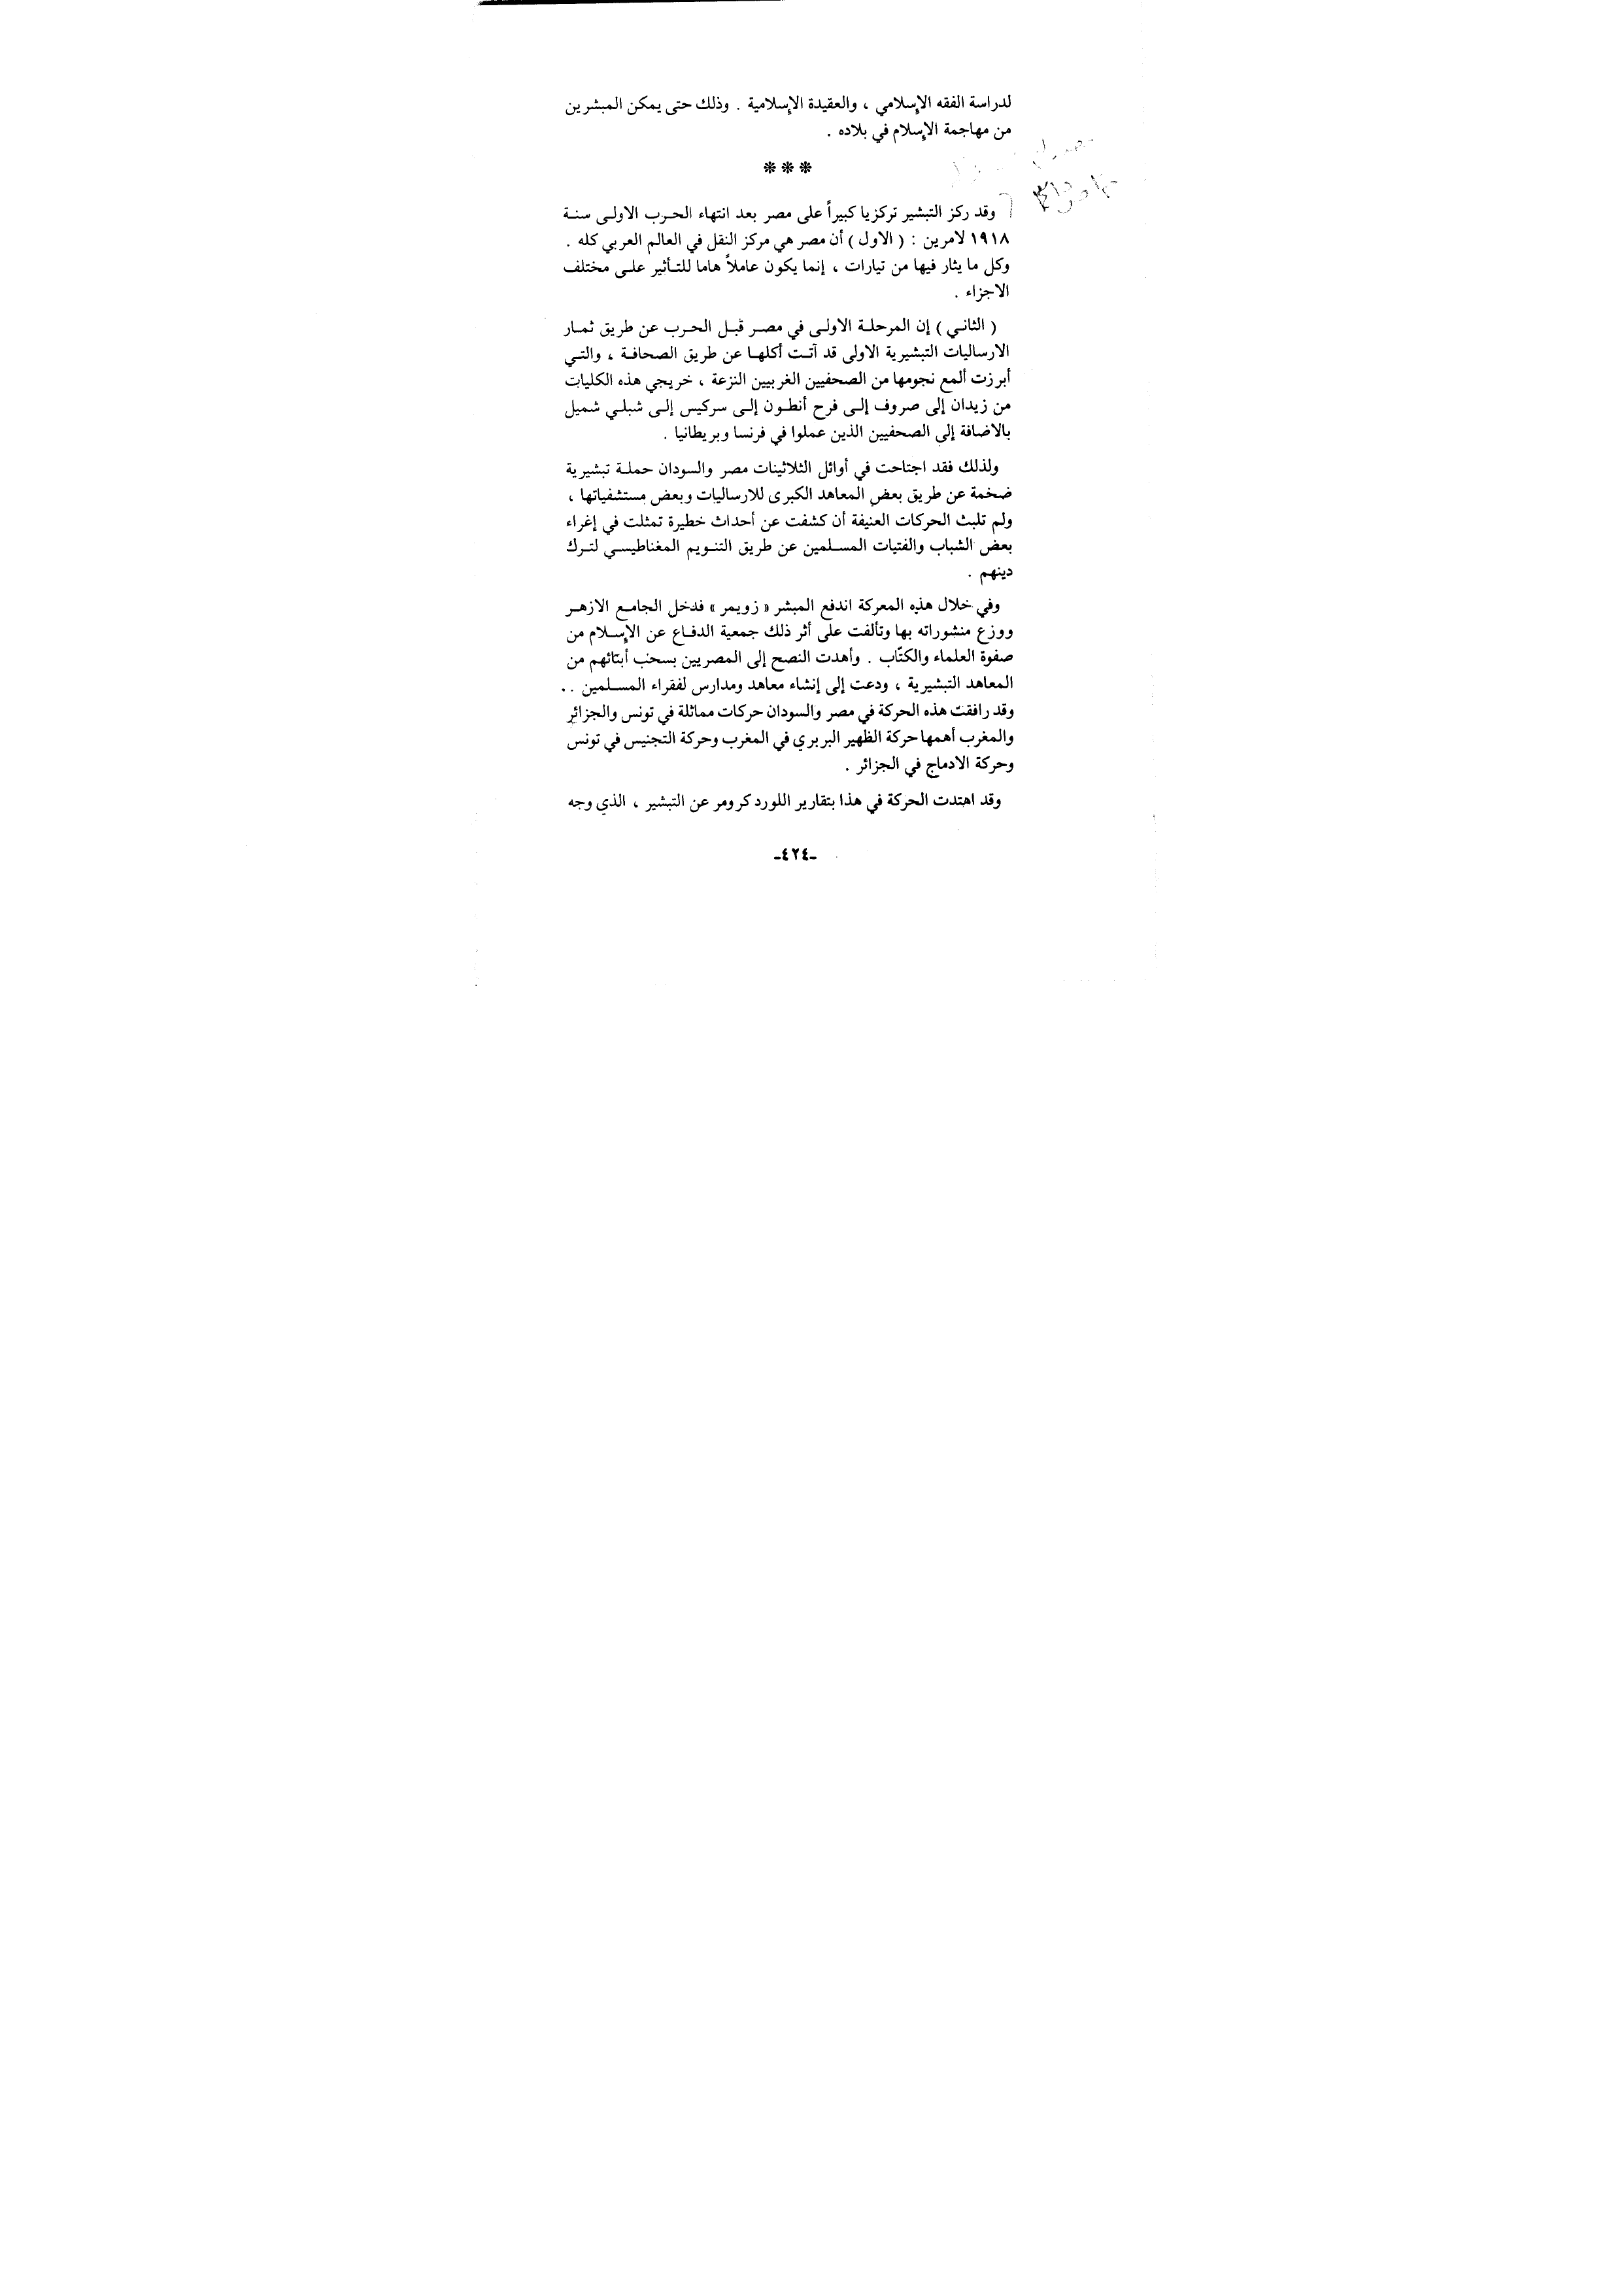 لدراسة الفقه الإسلامي ، والعقيدة الإسلامية . وذلك حتى يمكن المبشرين
من مهاجمة الإسلام في بلاده .
***
وقد ركز التبشير تركزيا كبيراً على مصر بعد انتهاء الحرب الاولى سنة
١٩١٨ لامرين : ( الاول ) أن مصر هي مركز النقل في العالم العربي كله .
وكل ما يثار فيها من تيارات ، إنما يكون عاملاً هاما للتأثير على مختلف
الاجزاء .
( الثاني ) إن المرحلة الاولى في مصر قبل الحرب عن طريق ثمار
الارساليات التبشيرية الاولى قد آتت أكلها عن طريق الصحافة ، والتي
أبرزت ألمع نجومها من الصحفيين الغربيين النزعة ، خريجي هذه الكليات
من زيدان إلى صروف إلى فرح أنطون إلى سركيس إلى شبلي شميل
بالاضافة إلى الصحفيين الذين عملوا في فرنسا وبريطانيا .
ولذلك فقد اجتاحت في أوائل الثلاثينات مصر والسودان حملة تبشيرية
ضخمة عن طريق بعض المعاهد الكبرى للارساليات وبعض مستشفياتها ،
ولم تلبث الحركات العنيفة أن كشفت عن أحداث خطيرة تمثلت في إغراء
بعض الشباب والفتيات المسلمين عن طريق التنويم المغناطيسي لترك
دينهم .
وفي خلال هذه المعركة اندفع المبشر « زويمر » فدخل الجامع الازهر
ووزع منشوراته بها وتألفت على أثر ذلك جمعية الدفاع عن الإسلام من
صفوة العلماء والكتّاب . وأهدت النصح إلى المصريين بسحب أبنائهم من
المعاهد التبشيرية ، ودعت إلى إنشاء معاهد ومدارس لفقراء المسلمين ..
وقد رافقت هذه الحركة في مصر والسودان حركات مماثلة في تونس والجزائر
والمغرب أهمها حركة الظهير البربري في المغرب وحركة التجنيس في تونس
وحركة الادماج في الجزائر .
وقد اهتدت الحركة في هذا بتقارير اللورد كرومر عن التبشير ، الذي وجه
-٤٢٤-